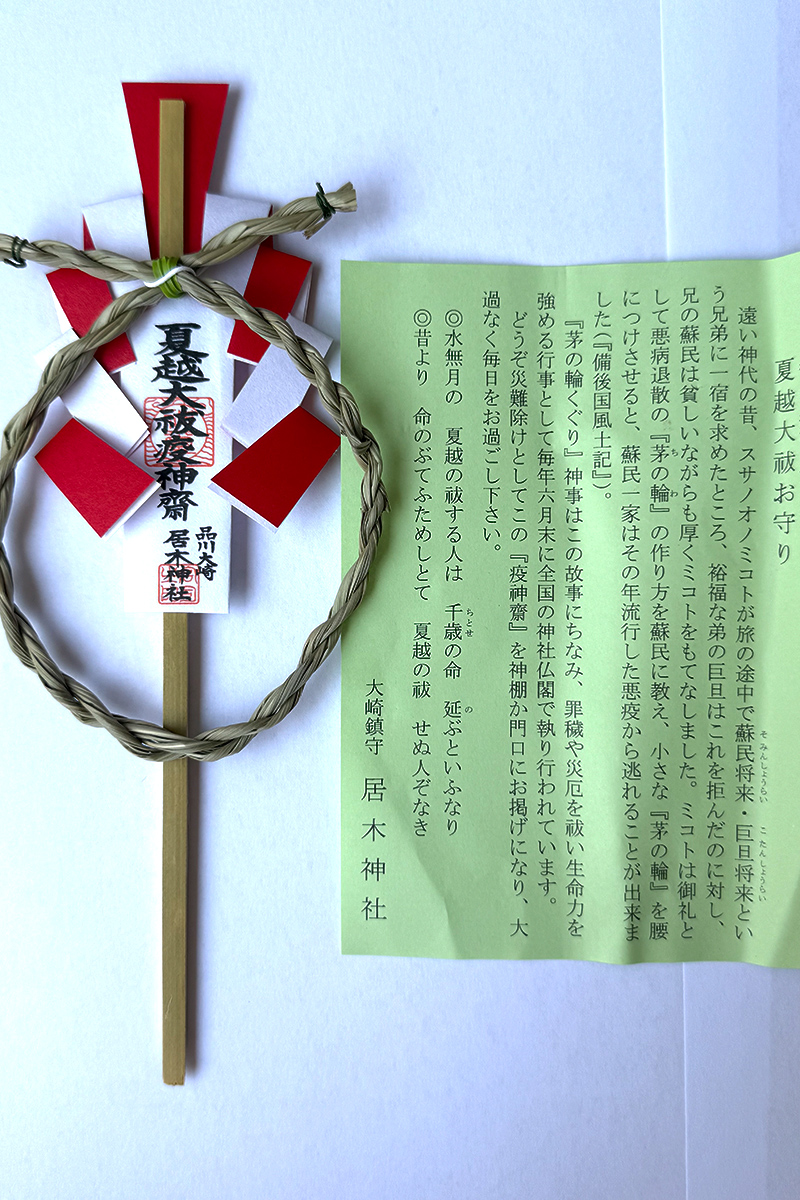 夏越大祓疫神齋
品川大崎
居木神社
夏越大祓お守り
遠い神代の昔、スサノオノミコトが旅の途中で蘇民将来・巨旦将来とい
そみんしょうらい
こたんしょうらい
う兄弟に一宿を求めたところ、裕福な弟の巨旦はこれを拒んだのに対し、
兄の蘇民は貧しいながらも厚くミコトをもてなしました。ミコトは御礼と
して悪病退散の『茅の輪』の作り方を蘇民に教え、小さな『茅の輪』を腰
ち
わ
につけさせると、蘇民一家はその年流行した悪疫から逃れることが出来ま
した(『備後国風土記』)。
『茅の輪くぐり』神事はこの故事にちなみ、罪穢や災厄を祓い生命力を
強める行事として毎年六月末に全国の神社仏閣で執り行われています。
どうぞ災難除けとしてこの『疫神齋』を神棚か門口にお掲げになり、大
過なく毎日をお過ごし下さい。
◎水無月の 夏越の祓する人は 千歳の命 延ぶといふなり
ちとせ
の
◎昔より 命のぶてふためしとて 夏越の祓 せぬ人ぞなき
大崎鎮守 居木神社